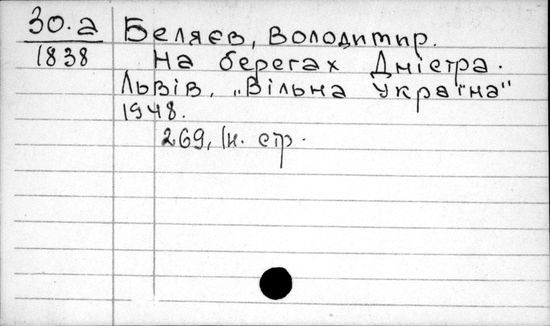 30.а
1838
Беляєв, Володимир.
На берегах Дністра.
Львів, „Вільна Україна"
1948.
269, 1н. стр.